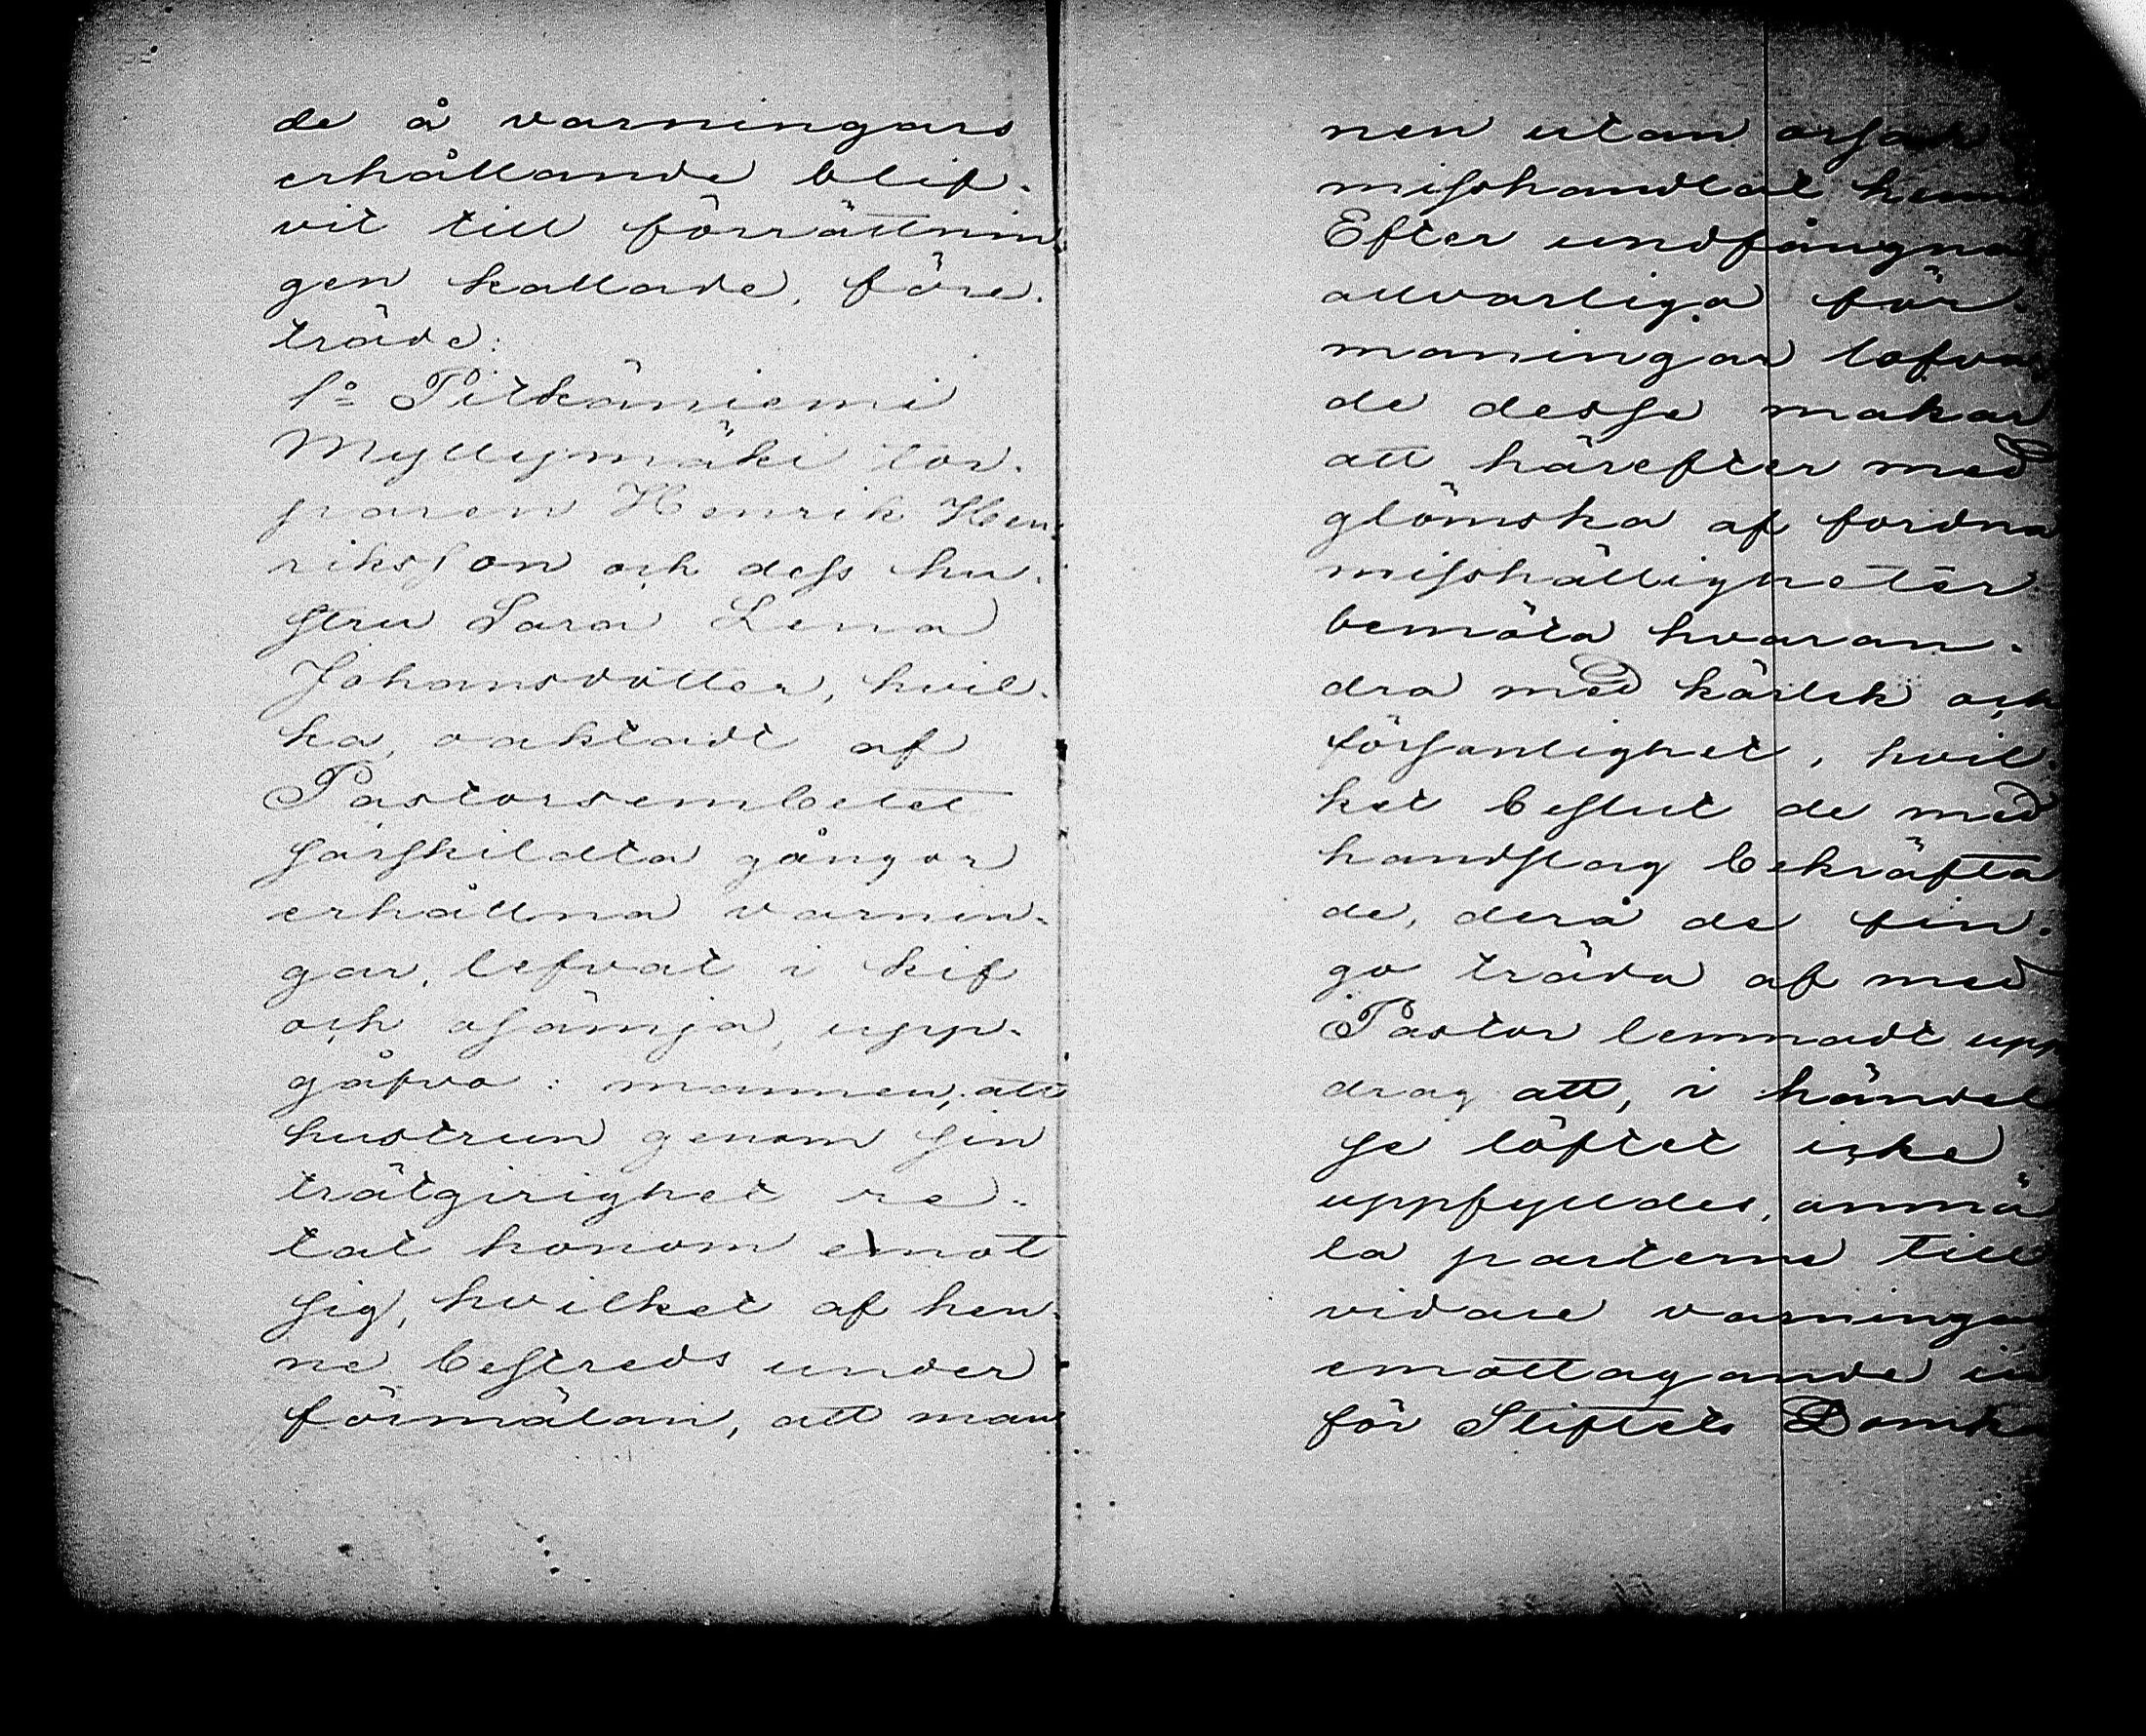 de å varningars
erhållande blif-
vit till förrättnin
gen kallade, före-
träde:
1o Pitkäniemi
Myllymäki tor-
paren Henrik Hen-
riksson och dess hu-
stru Sara Lena
Johansdotter, hvil-
ka, oaktadt af
Pastorsembetet
särskildta gångor
erhållna varnin-
gar, lefvat i kif
och osämja, upp-
gåfvo: mannen, att
hustrun genom sin
trätgirighet re-
tat honom emot
sig, hvilket af hen-
ne bestreds under
förmälan, att man
nen utan orsak
misshandlat henne
Efter undfångna
allvarliga för-
maningar lofva
de desse makar
att härefter med
glömska af fordna
misshälligheter
bemöta hvaran-
dra med kärlek och
försonlighet, hvil-
ket beslut de med
handslag bekräfta
de, derå de fin-
go träda af med
Pastor lemnadt upp
drag att, i händel
se löftet icke
uppfylldes, anmä
la parterne till
vidare varningars
emottagande in
för Stiftets Domka